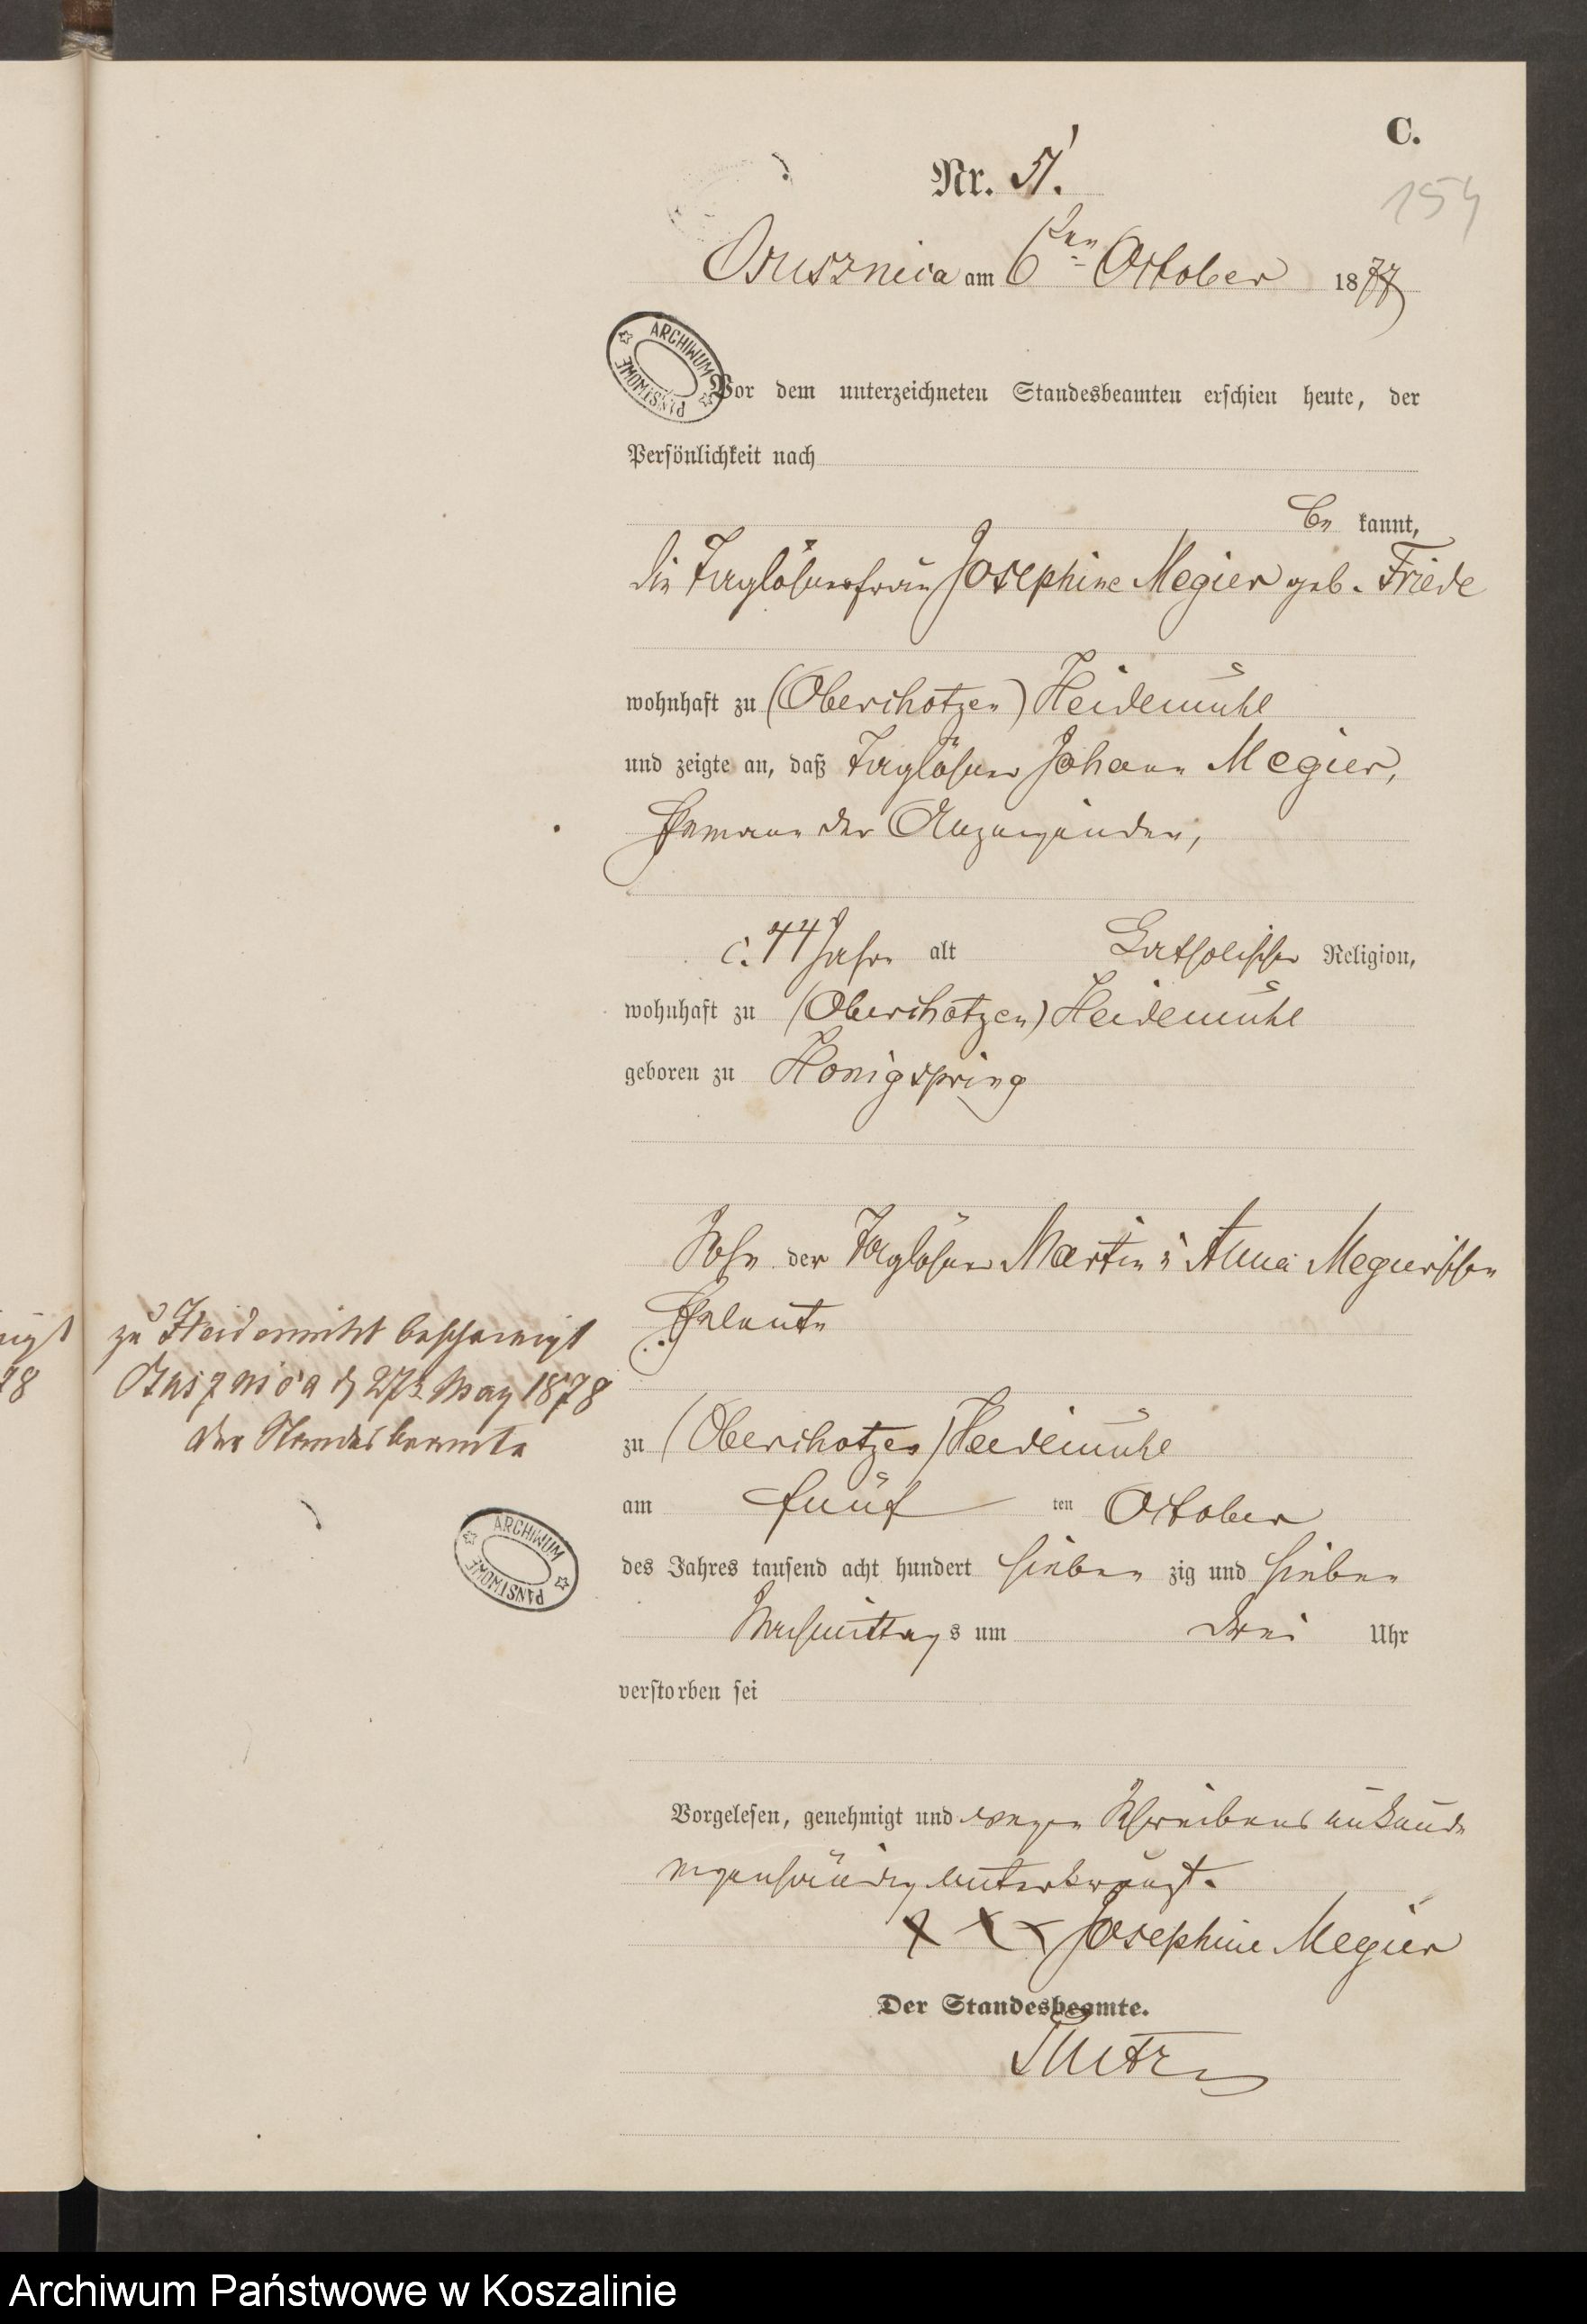 C.
Nr. 51.
154
Osusznica am 6ten October 1877
ARCHIWUM PAŃSTWOWE
Vor dem unterzeichneten Standesbeamten erschien heute, der
Persönlichkeit nach
be kannt,
die Taglöhnerfrau Josephine Megier geb. Friede
wohnhaft zu (Oberchotzen) Heidemühl
und zeigte an, daß Taglöhner Johann Megier,
Ehemann der Anzeigenden,
c. 44 Jahre alt Katholischer Religion,
wohnhaft zu (Oberchotzen) Heidemühl
geboren zu Honigspring
Sohn der Taglöhner Martin u Anna Megierschen
Eheleute
zu (Oberchotzen) Heidemühl
am fünf ten October
des Jahres tausend acht hundert sieben zig und sieben
Nachmittags um drei Uhr
verstorben sei
Vorgelesen, genehmigt und wegen Schreibens unkunde
eigenhändig unterkreuzt.
x x x Josephine Megier
Der Standesbeamte.
zu Heidemühl bescheinigt
78
der Standesbeamte
ARCHIWUM PAŃSTWOWE
Archiwum Państwowe w Koszalinie